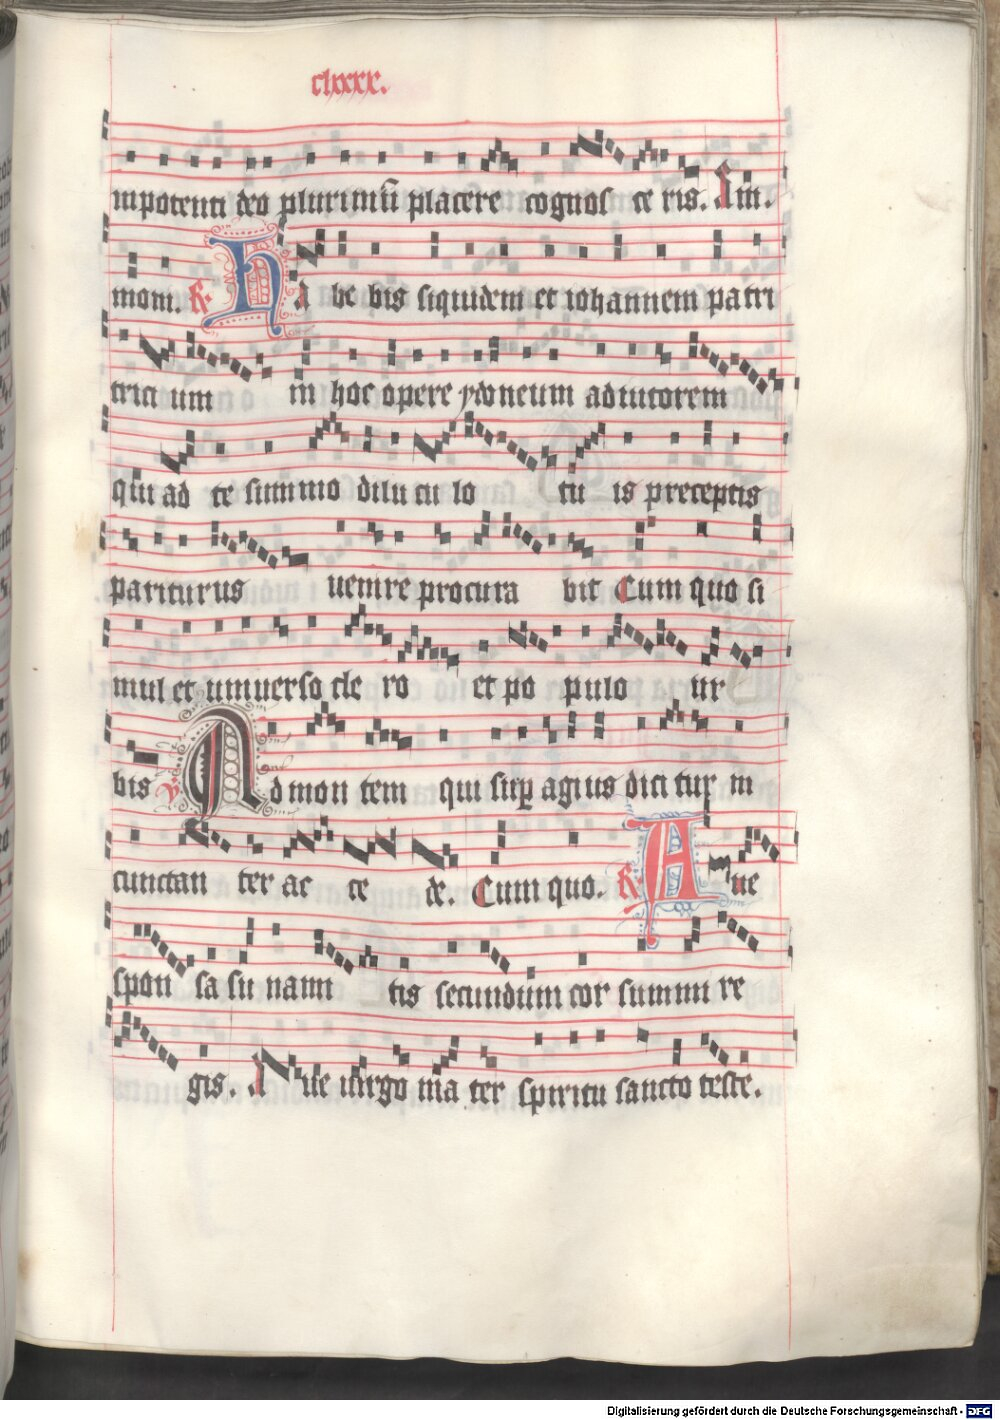 clxxx.
mpotenti deo plurimũ placere cognos ce ris. Am.
mom. R. Ha be bis siquidem et iohannem patri
trici um in hoc opere ydoneum adiutorem
qui ad te summo dilu cu lo tu is preceptis
pariturus uenire procura bit Cum quo si
mul et uniuerso cle ro et po pulo ur
bis V. Ad mon tem qui sup agius dici tur in
cunctan ter ac ce de. Cum quo. R. Aue
spon sa su nami tis secundum cor summi re
gis. Aue uirgo ma ter spiritu sancto teste.
Digitalisierung gefördert durch die Deutsche Forschungsgemeinschaft - DFG